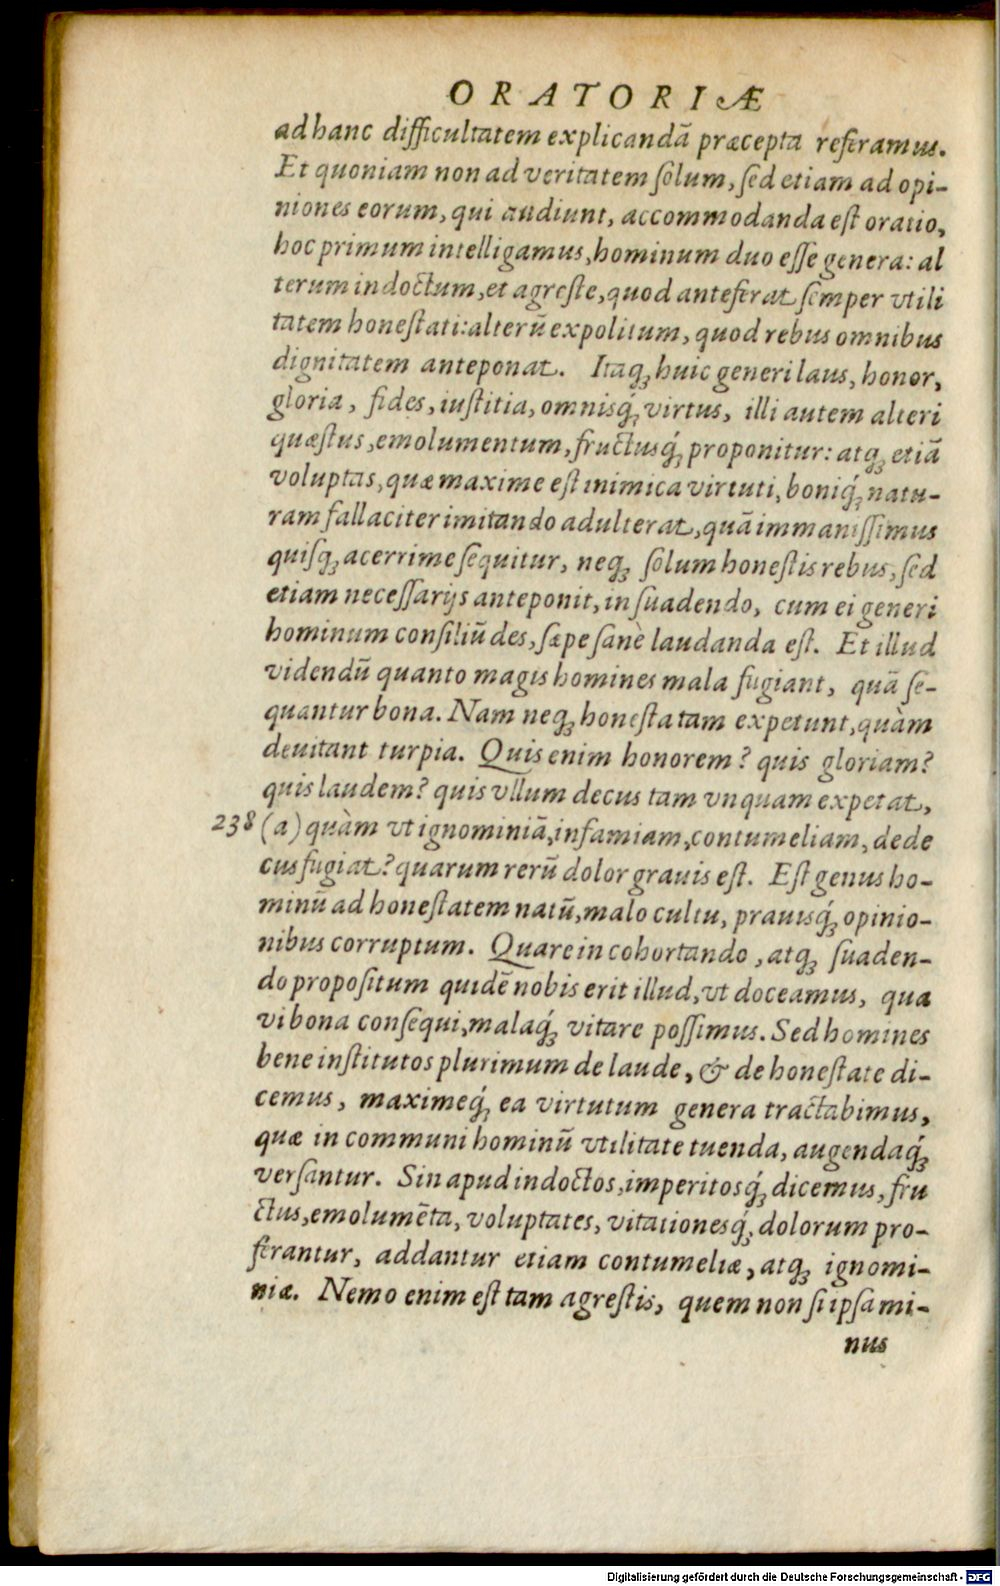 ORATORIÆ
ad hanc difficultatem explicandā præcepta referamus.
Et quoniam non ad veritatem ſolum, ſed etiam ad opi-
niones eorum, qui audiunt, accommodanda eſt oratio,
hoc primum intelligamus, hominum duo eſſe genera: al
terum indoctum, et agreſte, quod anteferat ſemper vtili
tatem honeſtati: alterū expolitum, quod rebus omnibus
dignitatem anteponat. Itaq́; huic generi laus, honor,
gloria, fides, iuſtitia, omnisq́; virtus, illi autem alteri
quæſtus, emolumentum, fructusq́; proponitur: atq; etiā
voluptas, quæ maxime eſt inimica virtuti, boniq́; natu-
ram fallaciter imitando adulterat, quā immaniſſimus
quiſq; acerrime ſequitur, neq; ſolum honeſtis rebus, ſed
etiam neceſſarijs anteponit, in ſuadendo, cum ei generi
hominum conſiliū des, ſæpe ſanè laudanda eſt. Et illud
videndū quanto magis homines mala fugiant, quā ſe-
quantur bona. Nam neq; honeſta tam expetunt, quàm
deuitant turpia. Quis enim honorem? quis gloriam?
quis laudem? quis vllum decus tam vnquam expetat,
238 (a) quàm vt ignominiā, infamiam, contumeliam, dede
cus fugiat? quarum rerū dolor grauis eſt. Eſt genus ho-
minū ad honeſtatem natū, malo cultu, prauisq́; opinio-
nibus corruptum. Quare in cohortando, atq; ſuaden-
do propoſitum quidē nobis erit illud, vt doceamus, qua
vi bona conſequi, malaq́; vitare poſſimus. Sed homines
bene inſtitutos plurimum de laude, & de honeſtate di-
cemus, maximeq́; ea virtutum genera tractabimus,
quæ in communi hominū vtilitate tuenda, augendaq́;
verſantur. Sin apud indoctos, imperitosq́; dicemus, fru
ctus, emolumēta, voluptates, vitationesq́; dolorum pro-
ferantur, addantur etiam contumeliæ, atq; ignomi-
niæ. Nemo enim eſt tam agreſtis, quem non ſi ipſa mi-
nus
Digitalisierung gefördert durch die Deutsche Forschungsgemeinschaft - DFG